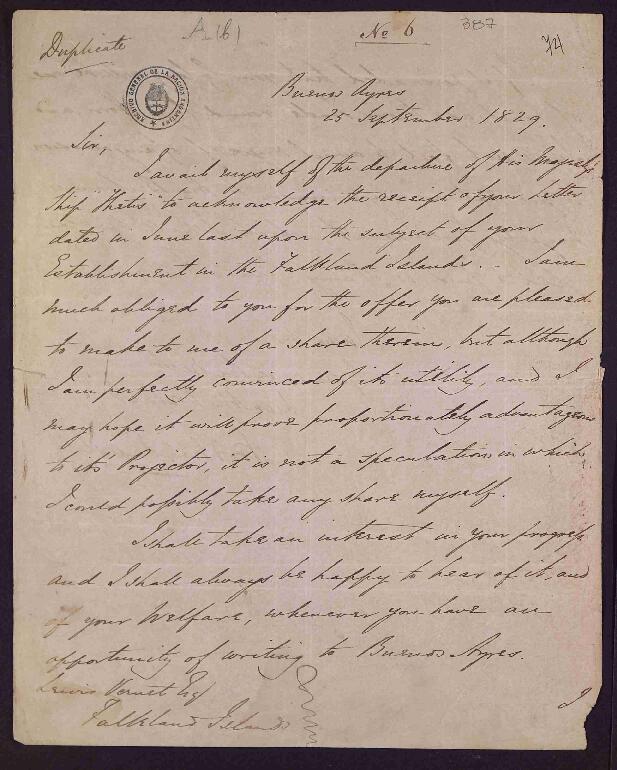 Duplicate
A (b)
No 6
387
74
ARCHIVO GENERAL DE LA NACION ARGENTINA
Buenos Ayres
25 September 1829.
Sir,
I avail myself of the departure of His Majesty's
Ship "Thetis" to acknowledge the receipt of your Letter
dated in June last upon the subject of your
Establishment in the Falkland Islands. - I am
much obliged to you for the offer you are pleased
to make to me of a share therein, but although
I am perfectly convinced of its utility, and I
may hope it will prove proportionately advantageous
to its Projector, it is not a speculation in which
I could possibly take any share myself.
I shall take an interest in your progress
and I shall always be happy to hear of it, and
of your Welfare, whenever you have an
opportunity of writing to Buenos Ayres.
Lewis Vernet Esq
Falkland Islands
I